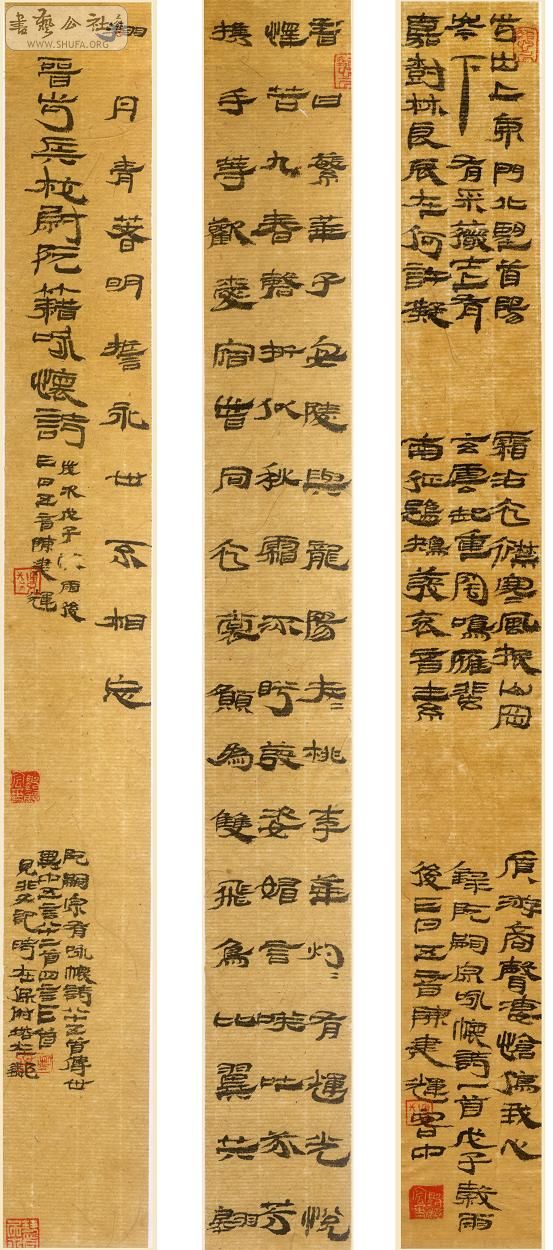 步出上東門北望首陽
岑下有采薇士上有
嘉樹林良辰在何許凝
霜沾衣襟寒風振山岡
玄雲起重陰鳴雁飛
南征鶗鴂發哀音素
質游商聲悽愴傷我心
錄阮嗣宗詠懷詩一首戊子穀雨
後三日五音陳建輝書
昔日繁華子安陵與龍陽夭=桃李華灼=有輝光悅
懌若九春磬折似秋霜流盻發姿媚言笑吐芬芳
攜手等歡愛宿昔同衣裳願為雙飛鳥比翼共翱
翔丹青著明誓永世不相忘
晉步兵校尉阮籍詠懷詩
歲次戊子雨後
三日五音陳建輝
阮嗣宗有詠懷詩八十五首傳世
其中五言八十二首四言三首
時在保俶塔
書藝公社
WWW.SHUFA.ORG